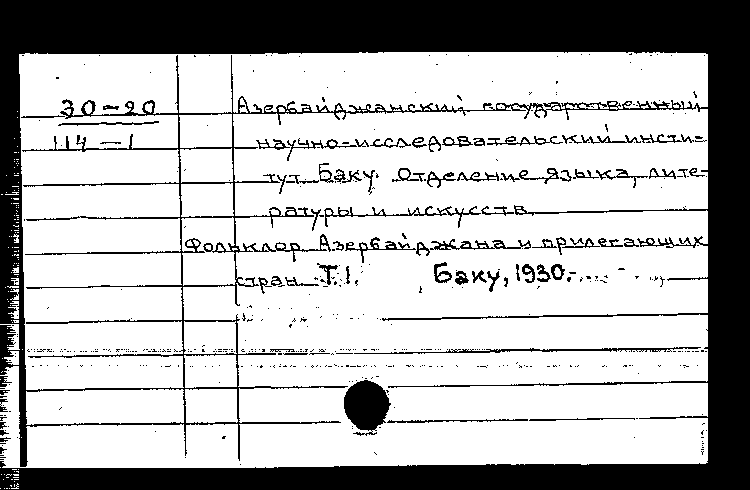 30-20
114-1
Азербайджанский государственный
научно-исследовательский инсти-
тут. Баку. Отделение языка, лите-
ратуры и искусств.
Фольклор Азербайджана и прилегающих
стран. Т.1. Баку, 1930.-